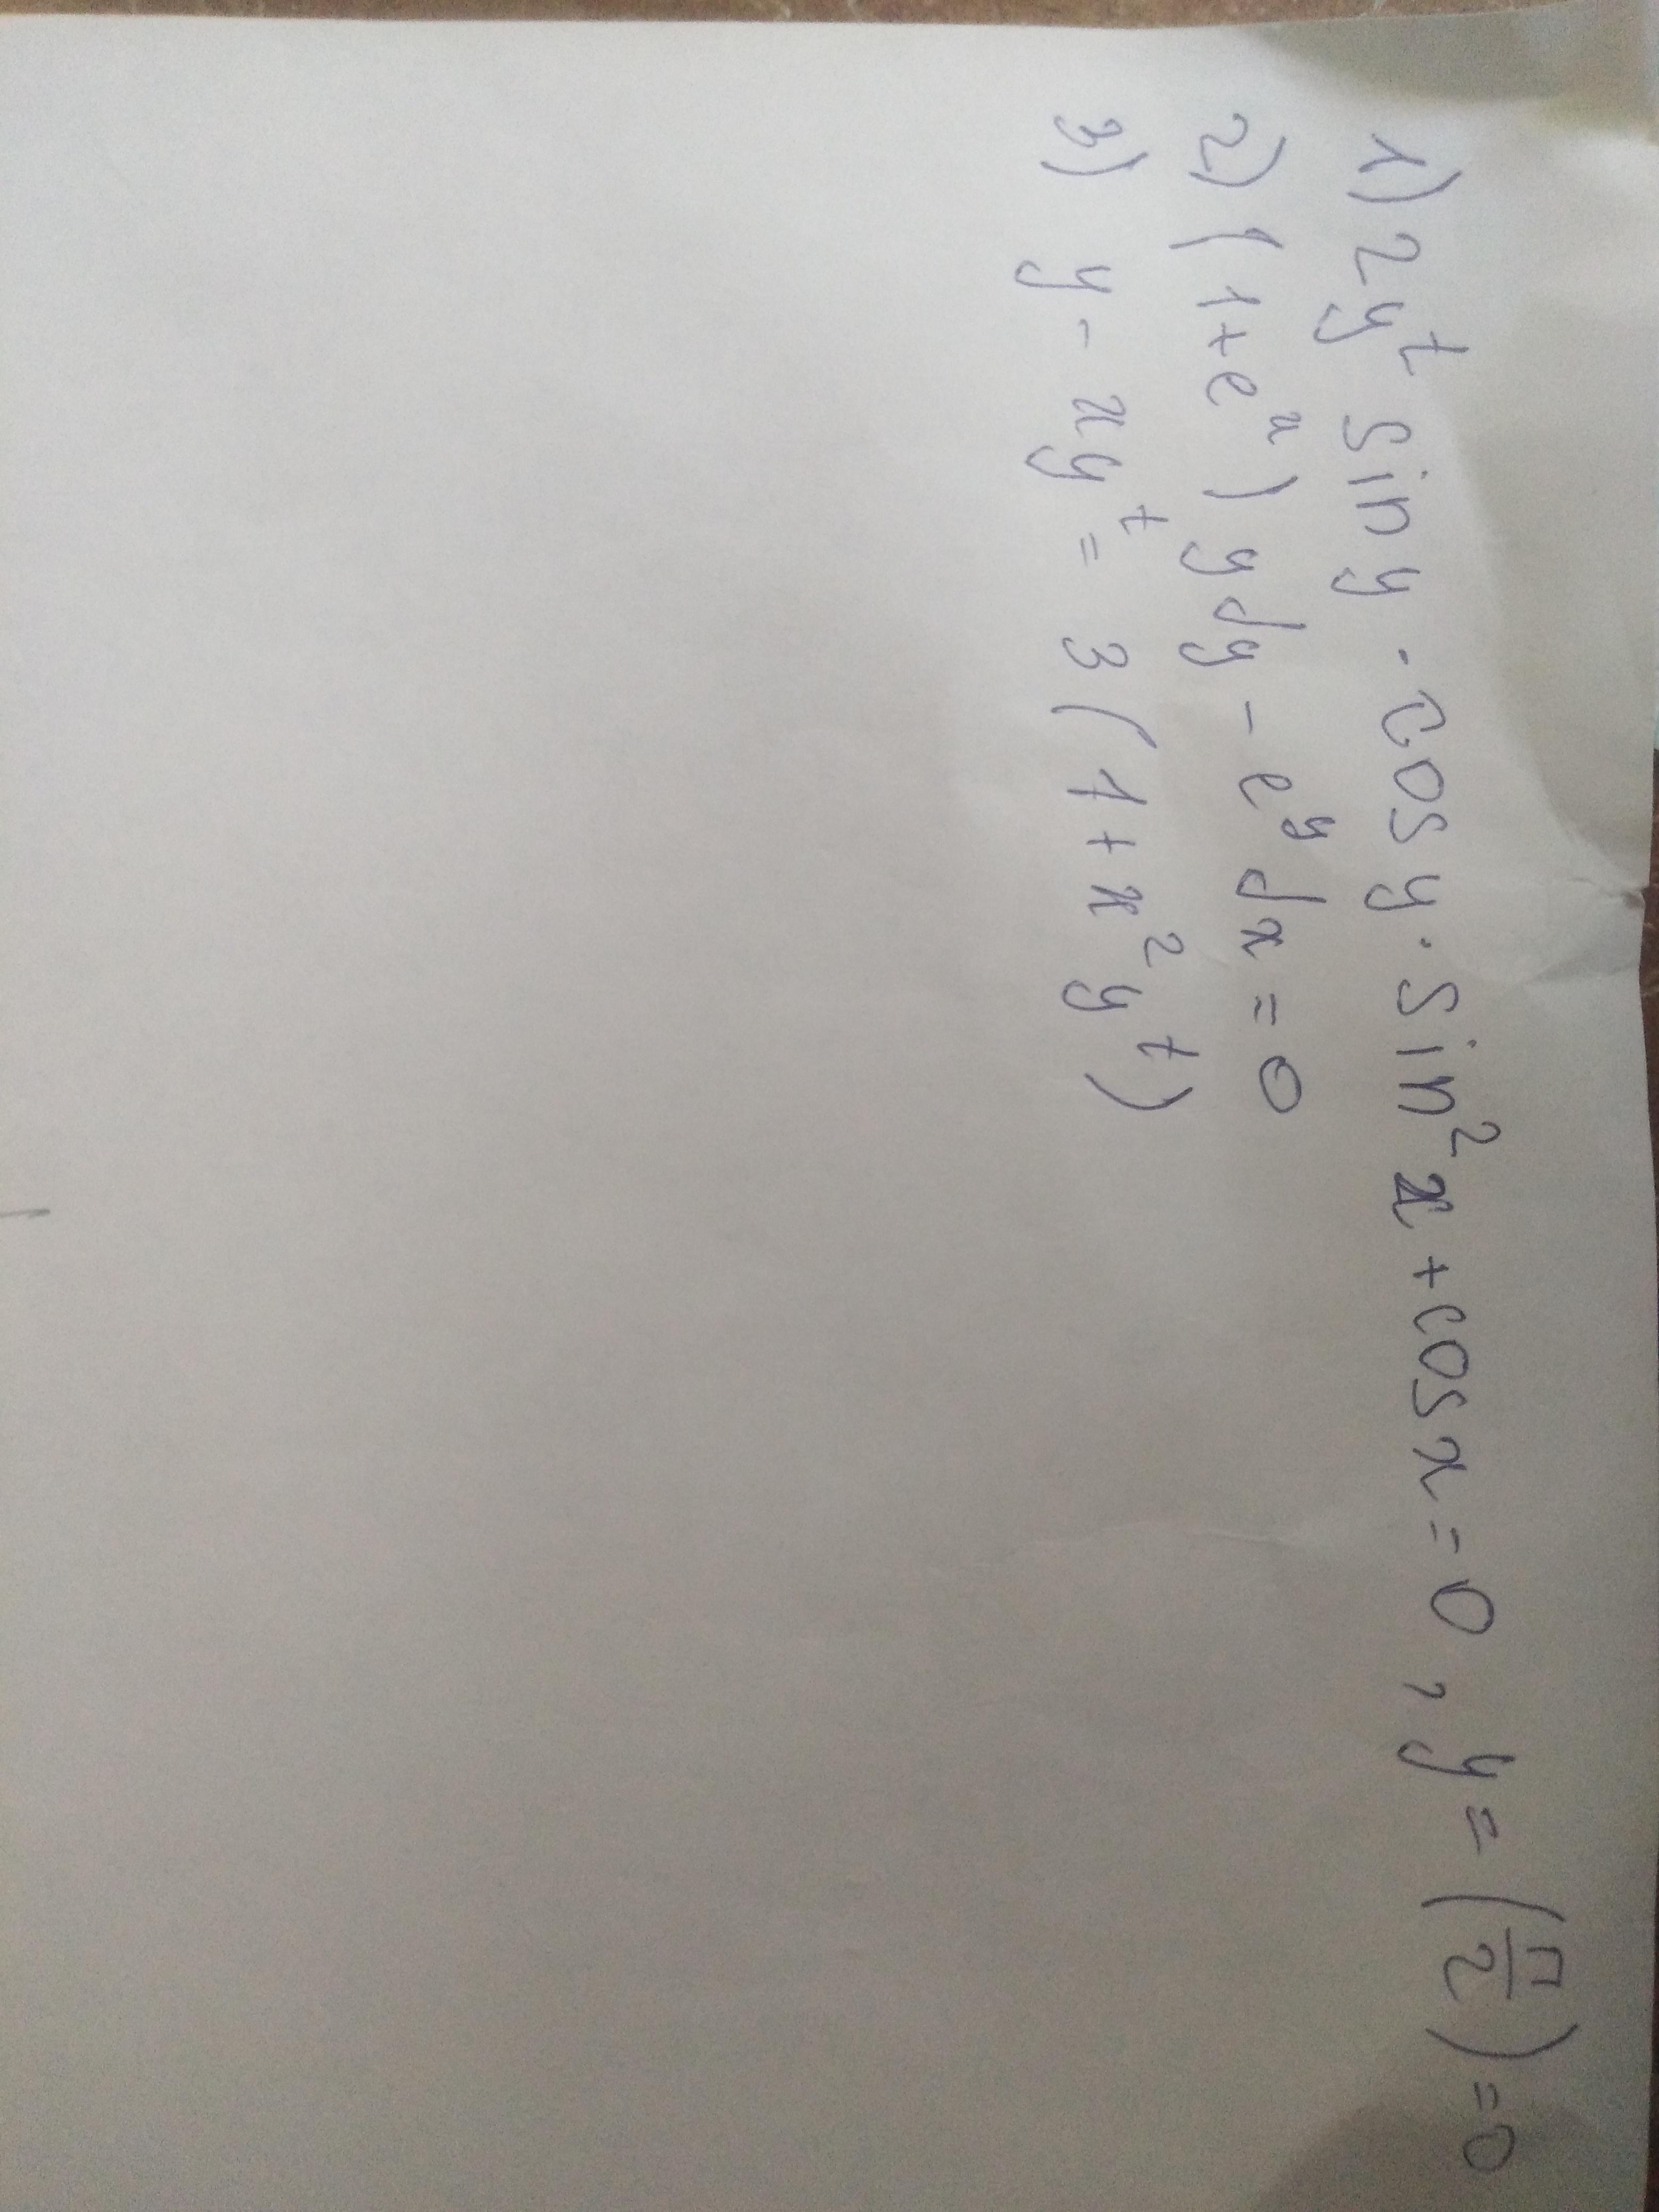 1) 2y^t sin y · cos y · sin² x + cos x = 0, y = (π/2) = 0
2) (1 + e^x) y dy - e^y dx = 0
3) y - xy^t = 3(1 + x² y^t)